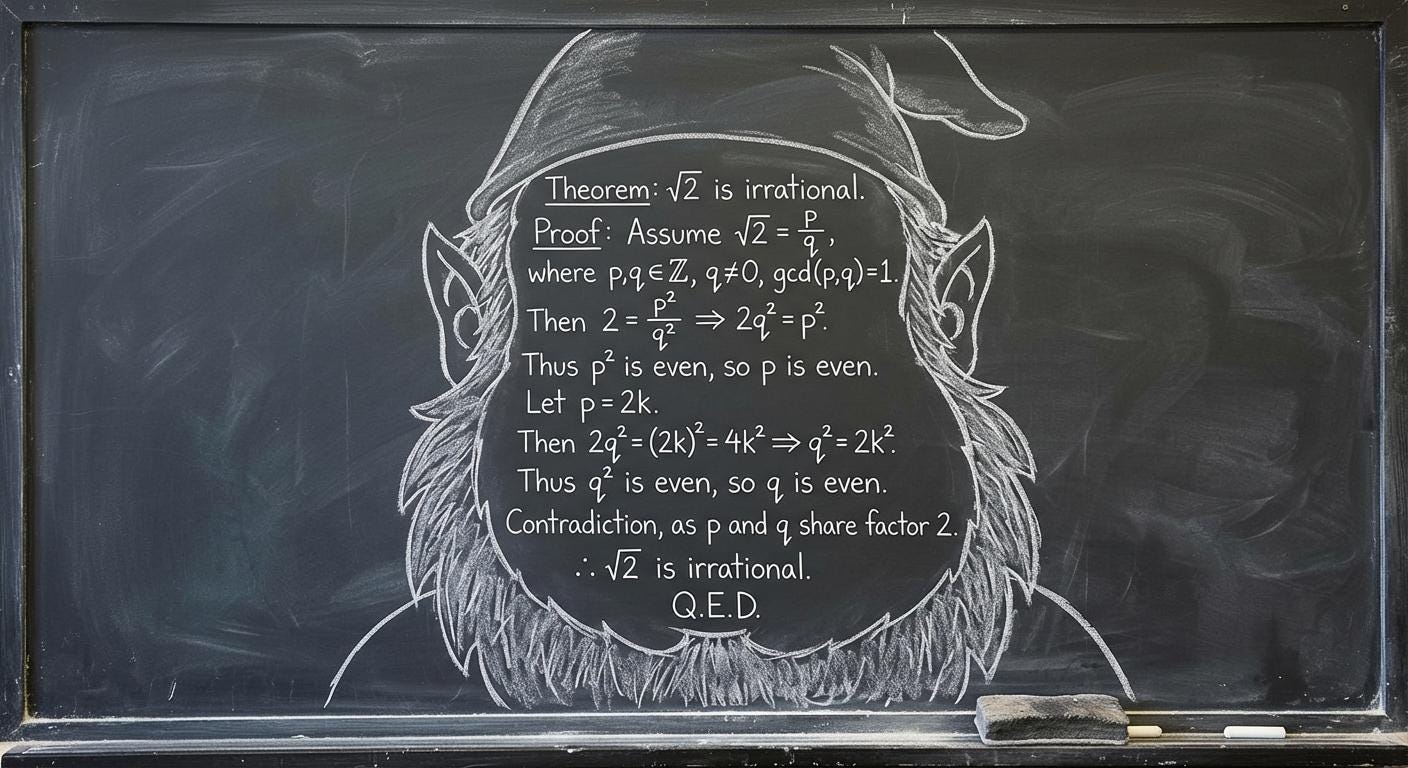 Theorem: √2 is irrational.
Proof: Assume √2 = p/q,
where p,q ∈ ℤ, q ≠ 0, gcd(p,q)=1.
Then 2 = p²/q² ⇒ 2q² = p².
Thus p² is even, so p is even.
Let p = 2k.
Then 2q² = (2k)² = 4k² ⇒ q² = 2k².
Thus q² is even, so q is even.
Contradiction, as p and q share factor 2.
∴ √2 is irrational.
Q.E.D.